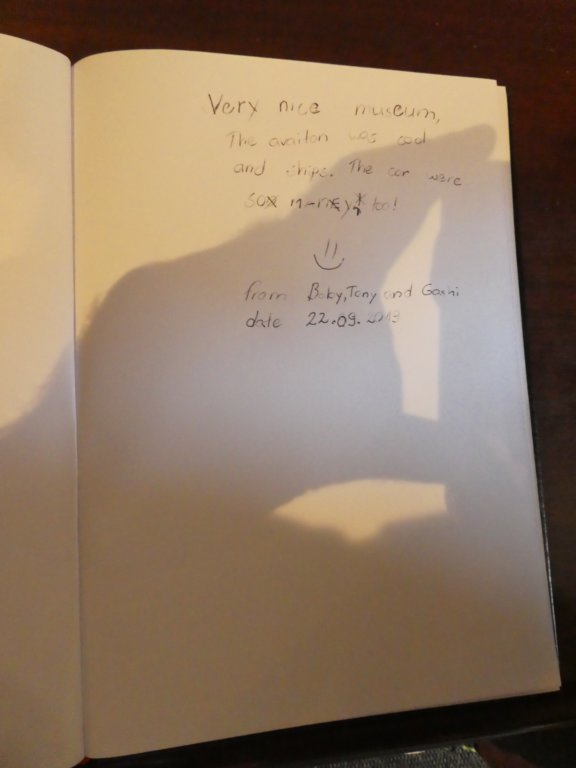 Very nice museum,
The avaiton was cool
and ships. The car were
too!
from Boby, Tony and Goshi
date 22.09.2013